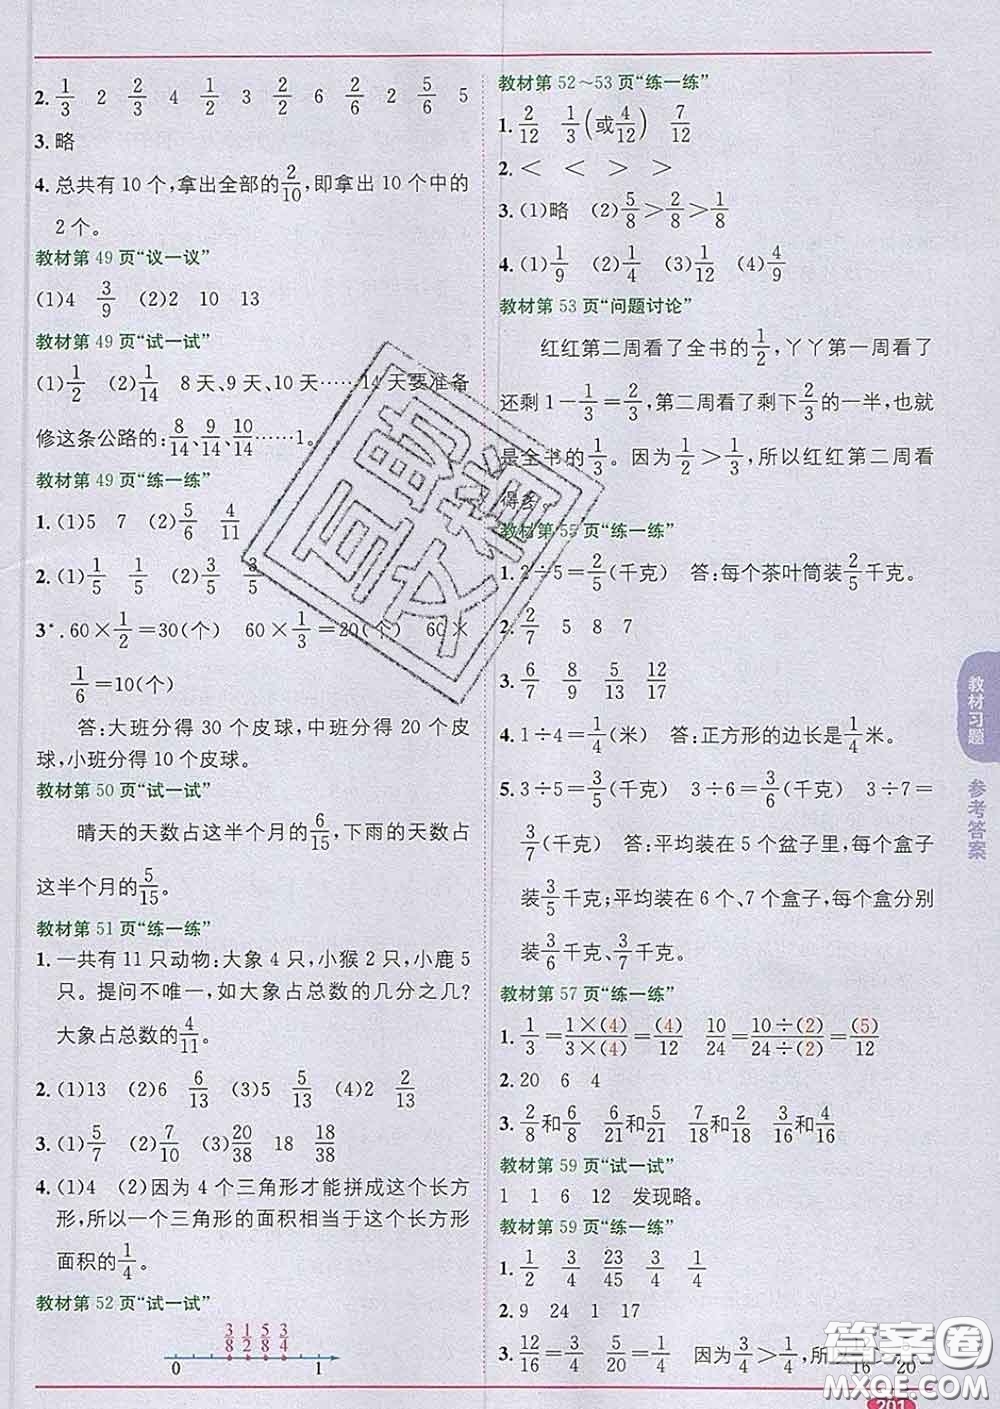 2. 1/3 2 2/3 4 1/2 3 2/2 6 2/6 2 5/6 5
3. 略
4. 总共有 10 个,拿出全部的2/10,即拿出 10 个中的
2 个。
教材第 49 页“议一议”
(1)4 3/9 (2)2 10 13
教材第 49 页“试一试”
(1)1/2 (2)1/14 8 天、9 天、10 天……14 天要准备
修这条公路的:8/14、9/14、10/14……1。
教材第 49 页“练一练”
1. (1)5 7 (2)5/6 4/11
2. (1)1/5 1/5 (2)3/5 3/5
3*. 60×1/2=30(个) 60×1/3=20(个) 60×
1/6=10(个)
答:大班分得 30 个皮球,中班分得 20 个皮
球,小班分得 10 个皮球。
教材第 50 页“试一试”
晴天的天数占这半个月的6/15,下雨的天数占
这半个月的5/15。
教材第 51 页“练一练”
1. 一共有 11 只动物:大象 4 只,小猴 2 只,小鹿 5
只。提问不唯一,如大象占总数的几分之几?
大象占总数的4/11。
2. (1)13 (2)6 6/13 (3)5 5/13 (4)2 2/13
3. (1)5/7 (2)7/10 (3)20/38 18 18/38
4. (1)4 (2)因为 4 个三角形才能拼成这个长方
形,所以一个三角形的面积相当于这个长方形
面积的1/4。
教材第 52 页“试一试”
3/8 1/2 5/8 3/4
0 1
教材第 52～53 页“练一练”
1. 2/12 1/3(或4/12) 7/12
2. < < > >
3. (1)略 (2)5/8>2/8>1/8
4. (1)1/9 (2)1/4 (3)1/12 (4)4/9
教材第 53 页“问题讨论”
红红第二周看了全书的1/2,丫丫第一周看了
还剩1-1/3=2/3,第二周看了剩下2/3的一半,也就
是全书的1/3。因为1/2>1/3,所以红红第二周看
得多。
教材第 55 页“练一练”
1. 2÷5=2/5(千克) 答:每个茶叶筒装2/5千克。
2. 2/7 5 8 7
3. 6/7 8/9 5/6 12/17
4. 1÷4=1/4(米) 答:正方形的边长是1/4米。
5. 3÷5=3/5(千克) 3÷6=3/6(千克) 3÷7=
3/7(千克) 答:平均装在 5 个盆子里,每个盒子
装3/5千克;平均装在 6 个、7 个盒子,每个盒分别
装3/6千克、3/7千克。
教材第 57 页“练一练”
1. 1/3=1×(4)/3×(4)=(4)/12 10/24=10÷(2)/24÷(2)=(5)/12
2. 20 6 4
3. 2/8和6/8 6/21和5/21 7/18和2/18 3/16和4/16
教材第 59 页“试一试”
1 1 6 12 发现略。
教材第 59 页“练一练”
1. 1/2 3/4 23/45 3/4
2. 9 24 1 17
3. 12/16=3/4 5/20=1/4 因为3/4>1/4,所以
教材习题
参考答案
201
答案卷
MXQE.COM